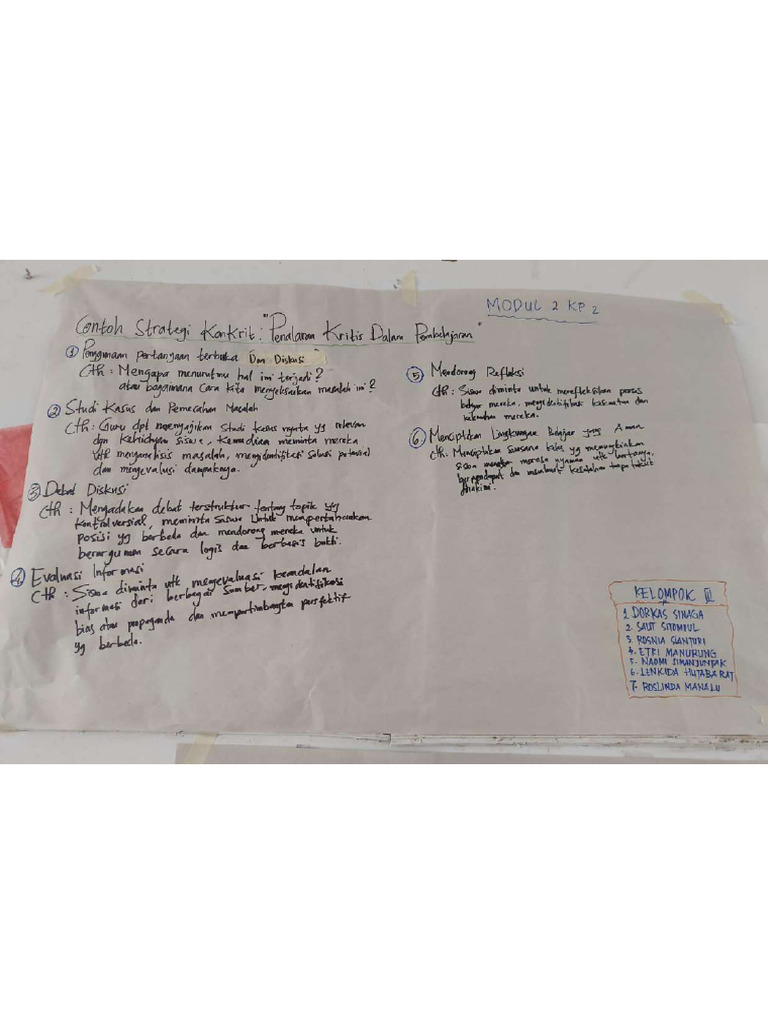 MODUL 2 KP 2
Contoh Strategi Konkrit: "Penalaran Kritis Dalam Pembelajaran"
① Penggunaan pertanyaan terbuka Dan Diskusi
Cth: Mengapa menurutmu hal ini terjadi?
atau bagaimana cara kita menyelesaikan masalah ini?
② Studi Kasus dan Pemecahan Masalah
Cth: Guru dpt menyajikan Studi kasus nyata yg relevan
dgn kehidupan siswa, kemudian meminta mereka
utk menganalisis masalah, mengidentifikasi solusi potensial
dan mengevalusi dampaknya.
③ Debat Diskusi
Cth: Mengadakan debat terstruktur tentang topik yg
kontroversial, meminta siswa untuk mempertahankan
posisi yg berbeda dan mendorong mereka untuk
berargumen secara logis dan berbasis bukti.
④ Evaluasi Informasi
Cth: Siswa diminta utk mengevaluasi keandalan
informasi dari berbagai sumber, mengidentifikasi
bias atau propaganda dan mempertimbangkan perspektif
yg berbeda.
⑤ Mendorong Refleksi
Cth: Siswa diminta untuk merefleksikan proses
belajar mereka, mengidentifikasi kekuatan dan
kelemahan mereka.
⑥ Menciptakan Lingkungan Belajar yang Aman
Cth: Menciptakan suasana kelas yg memungkinkan
siswa merasa nyaman utk bertanya,
berpendapat, dan membuat kesalahan tanpa takut
dihakimi.
KELOMPOK III
1. DORKAS SINAGA
2. SAUT SITOMPUL
3. ROSNIA SIANTURI
4. ETRI MANURUNG
5. NAOMI SIMANJUNTAK
6. LENKIDA HUTABARAT
7. ROSLINDA MANALU